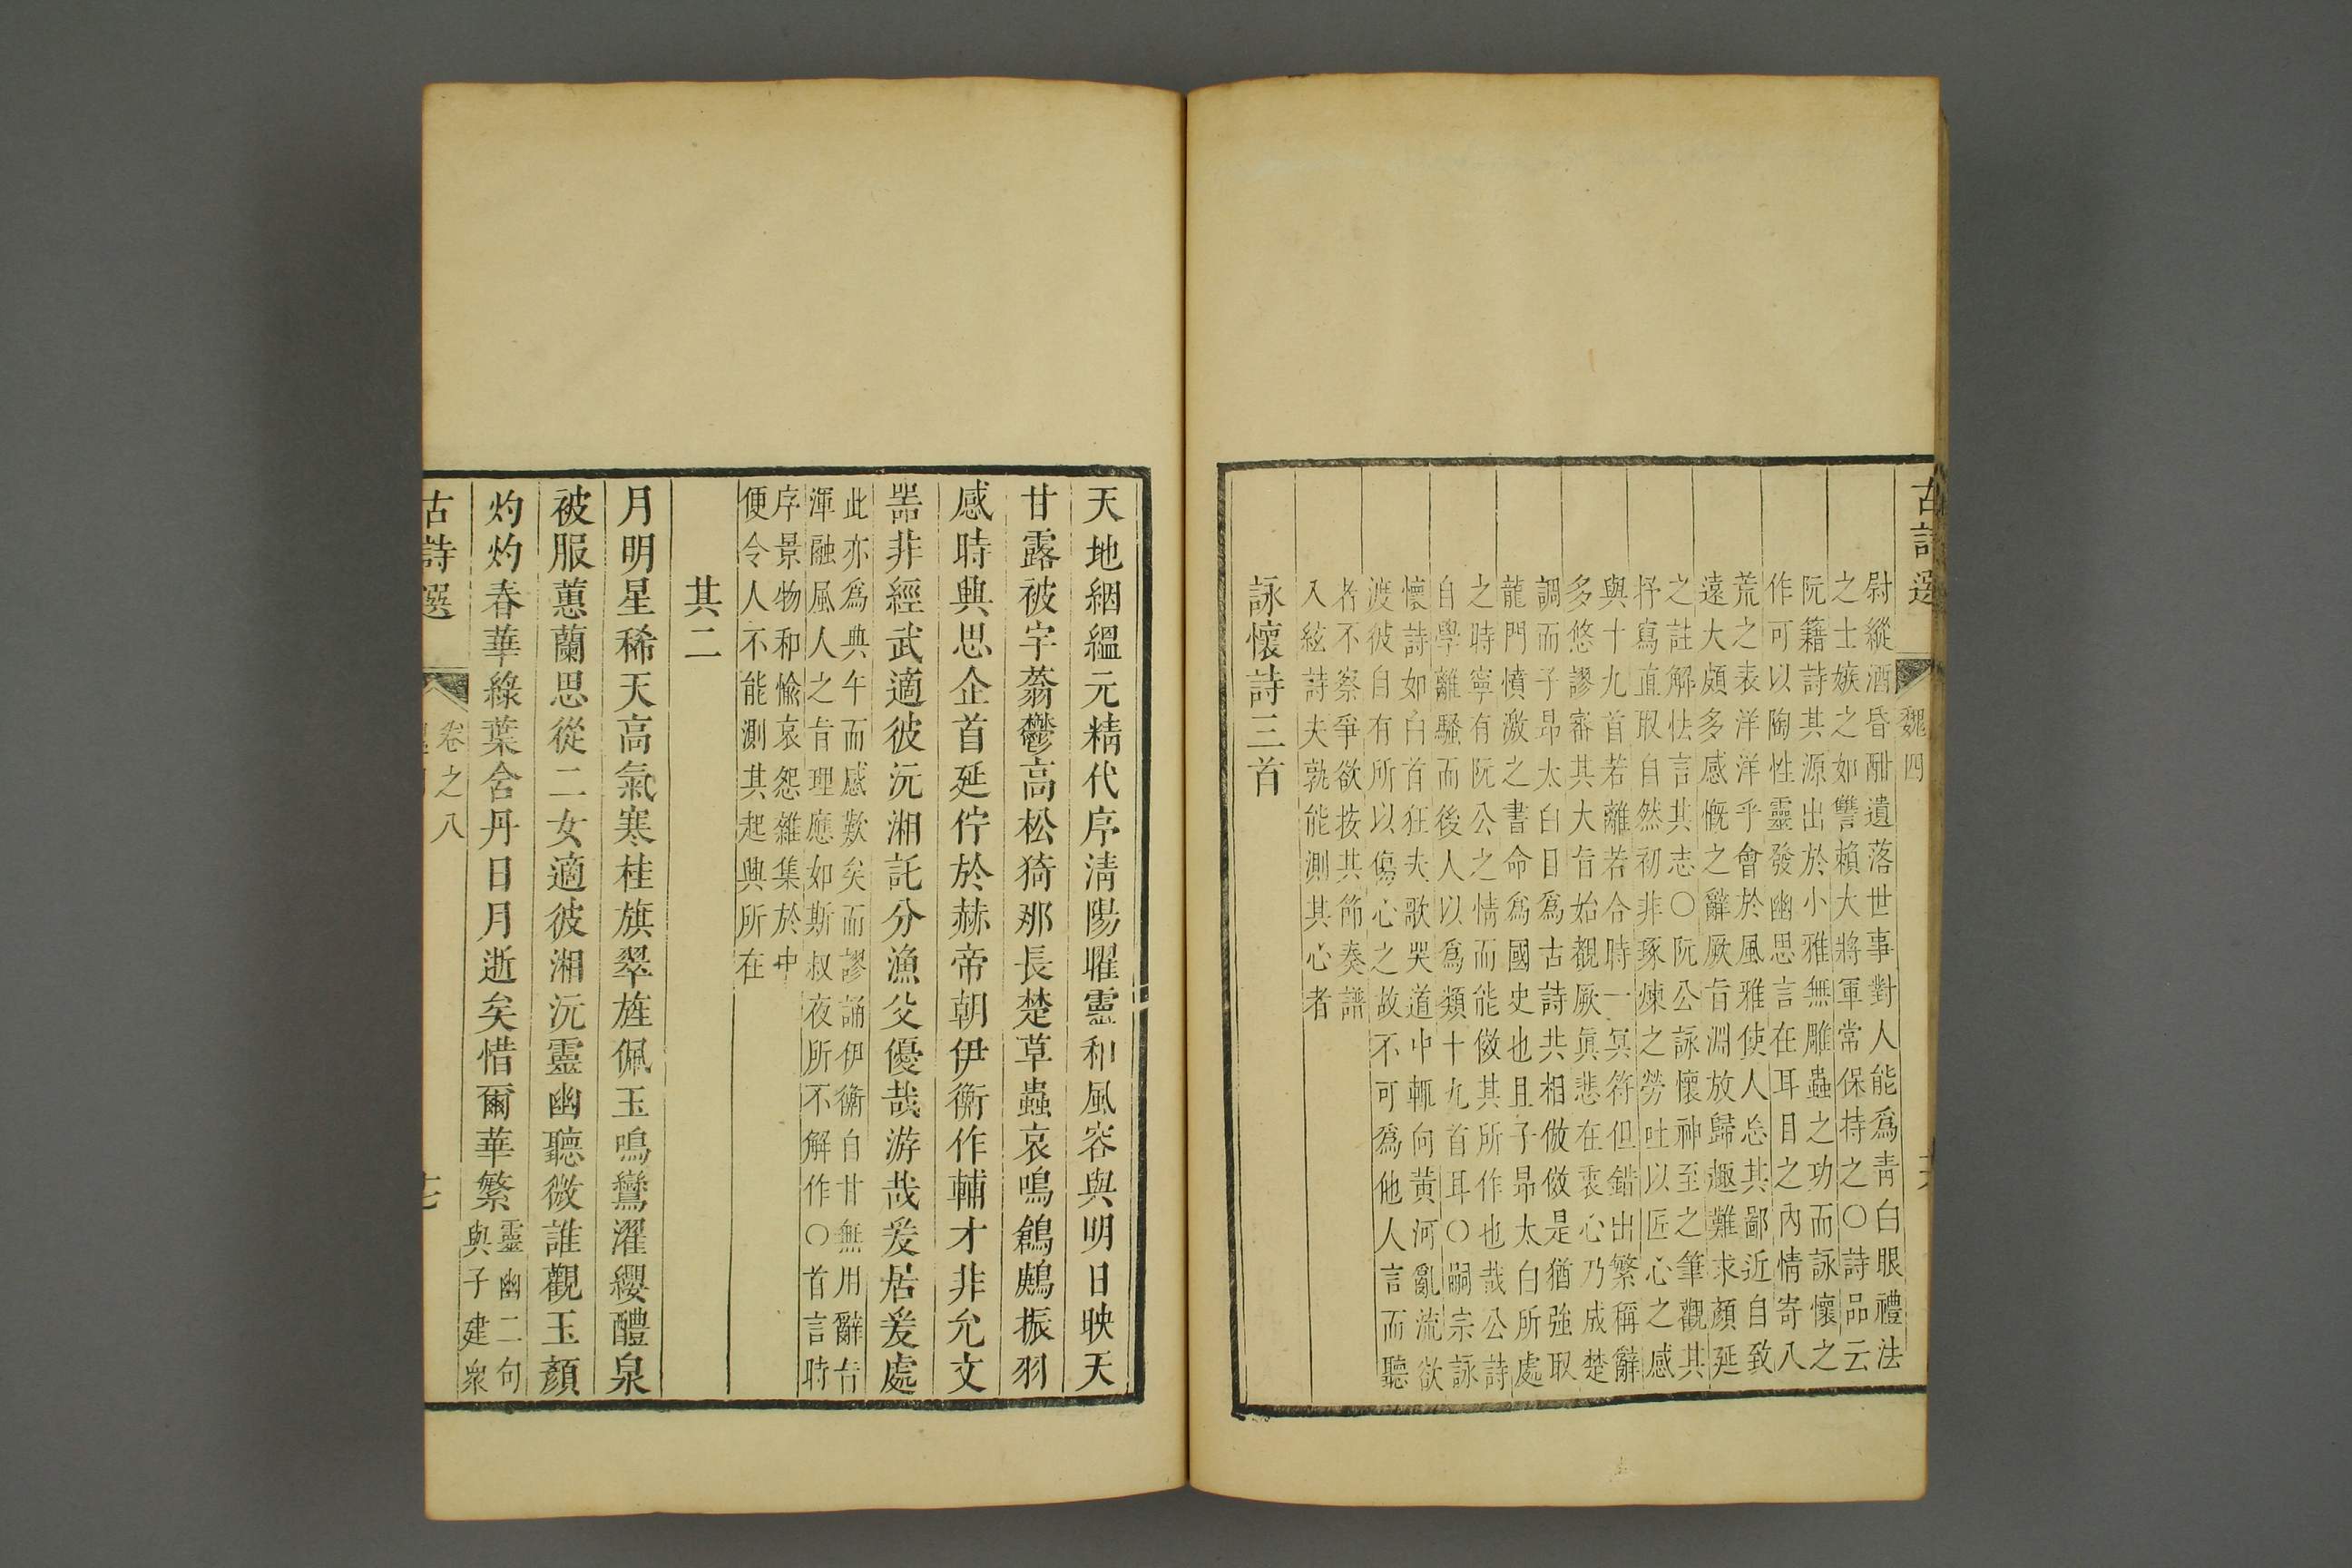 古詩選
魏四
尉縱酒昏酣遺落世事對人能爲靑白眼禮法
之士嫉之如讐賴大將軍常保持之〇詩品云
阮籍詩其源出於小雅無雕蟲之功而詠懷之
作可以陶性靈發幽思言在耳目之內情寄八
荒之表洋洋乎會於風雅使人忘其鄙近自致
遠大頗多感慨之辭厥旨淵放歸趣難求顏延
之註解怯言其志〇阮公詠懷神至之筆觀其
抒寫直取自然初非琢煉之勞吐以匠心之感
與十九首若離若合時一冥符但錯出繁稱辭
多悠謬審其大旨始覩厥眞悲在衷心乃成楚
調而子昻太白目爲古詩共相倣做是猶強取
龍門憤激之書命爲國史也且子昻太白所處
之時寧有阮公之情而能倣其所作也哉公詩
自學離騷而後人以爲類十九首耳〇嗣宗詠
懷詩如白首狂夫歌哭道中輒向黃河亂流欲
渡彼自有所以傷心之故不可爲他人言而聽
者不察爭欲按其節奏譜
入絃詩夫孰能測其心者
詠懷詩三首
天地絪縕元精代序淸陽曜靈和風容與明日映天
甘露被宇蓊鬱高松猗那長楚草蟲哀鳴鶬鶊振羽
感時興思企首延佇於赫帝朝伊衡作輔才非允文
噐非經武適彼沅湘託分漁父優哉游哉爰居爰處
此亦爲典午而感歎矣而謬誦伊衡自甘無用辭旨
渾融風人之旨理應如斯叔夜所不解作〇首言時
序景物和愉哀怨雜集於中
便令人不能測其起興所在
其二
月明星稀天高氣寒桂旗翠旌佩玉鳴鸞濯纓醴泉
被服蕙蘭思從二女適彼湘沅靈幽聽微誰觀玉顏
灼灼春華綠葉含丹日月逝矣惜爾華繁
靈幽二句
與子建衆
古詩選
卷之八